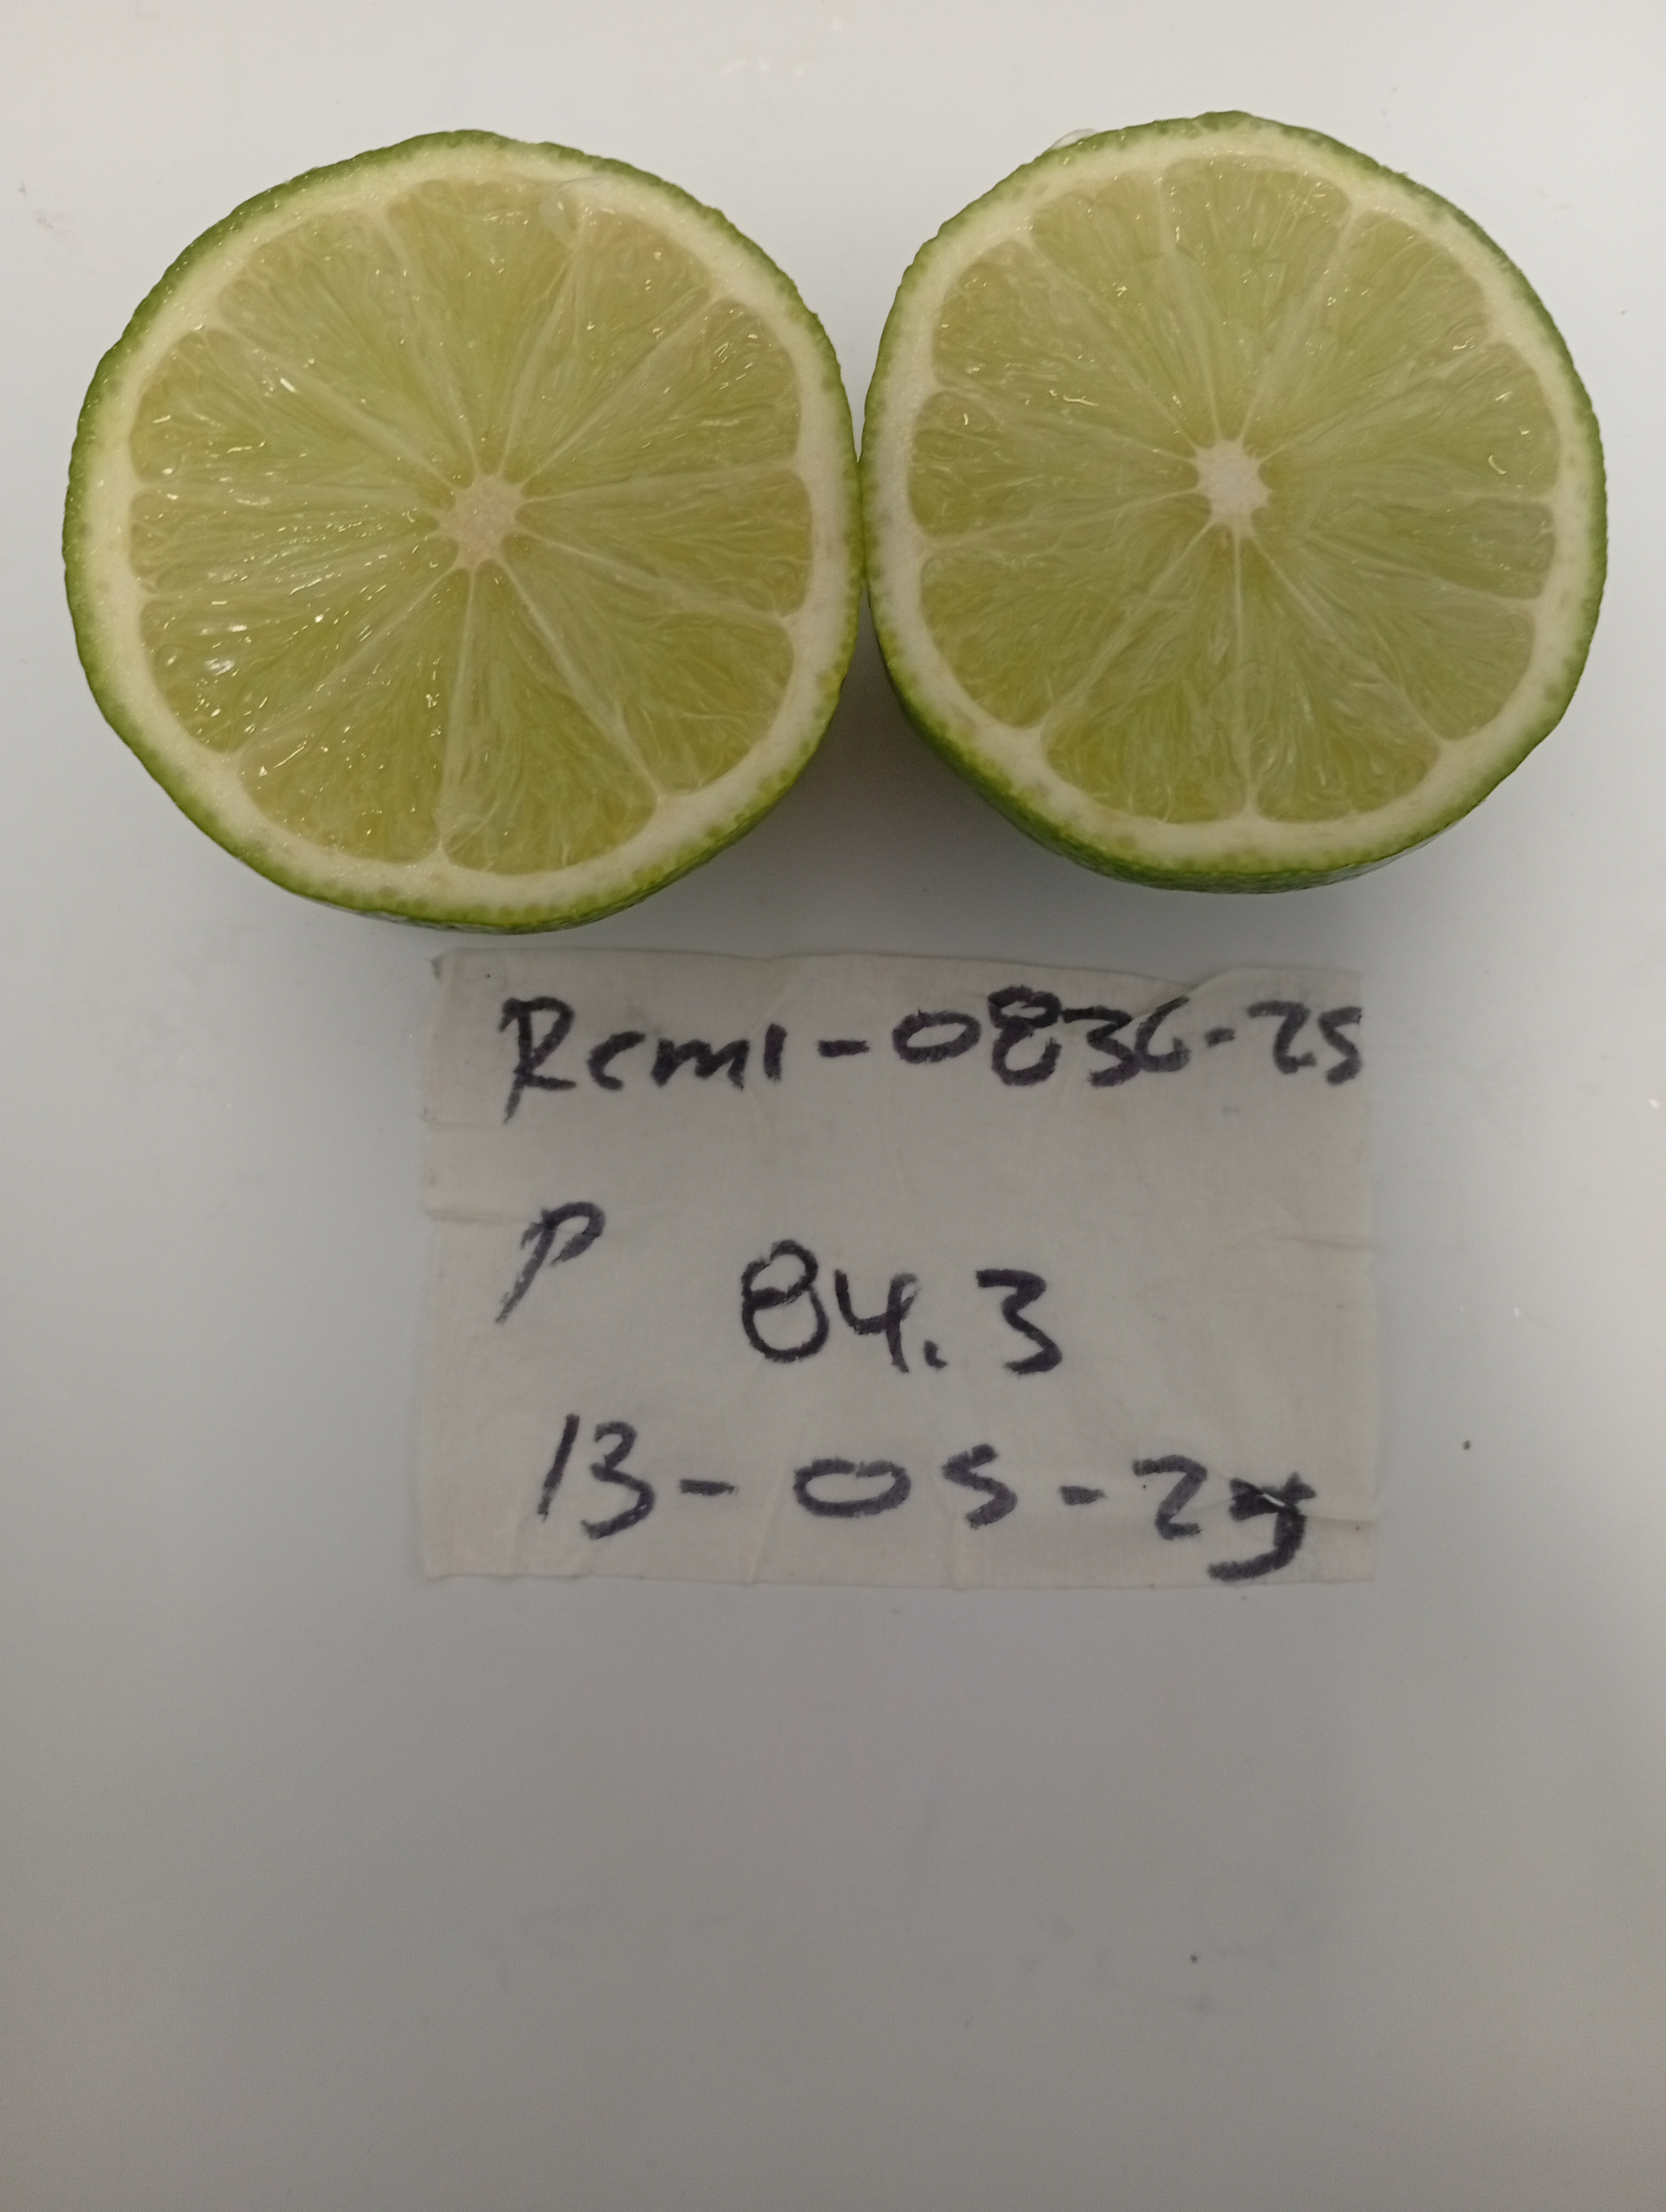 Rcm1-0836-25
P
84.3
13-05-25